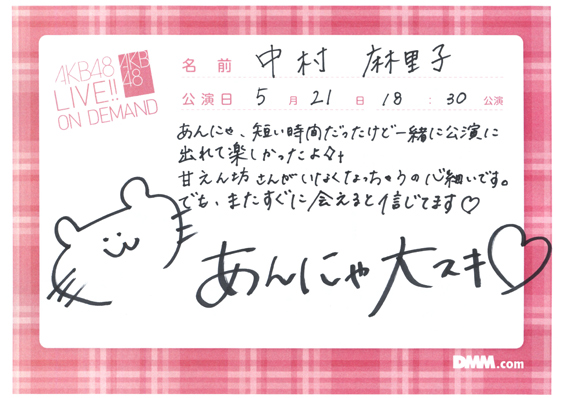 AKB48
LIVE!!
ON DEMAND
AKB
48
名前 中村 麻里子
公演日 5月21日 18:30 公演
あんにゃ、短い時間だったけど一緒に公演に
出れて楽しかったよ
甘えん坊さんがいなくなっちゃうの心細いです。
でも、またすぐに会えると信じてます♡
あんにゃ大スキ♡
DMM.com